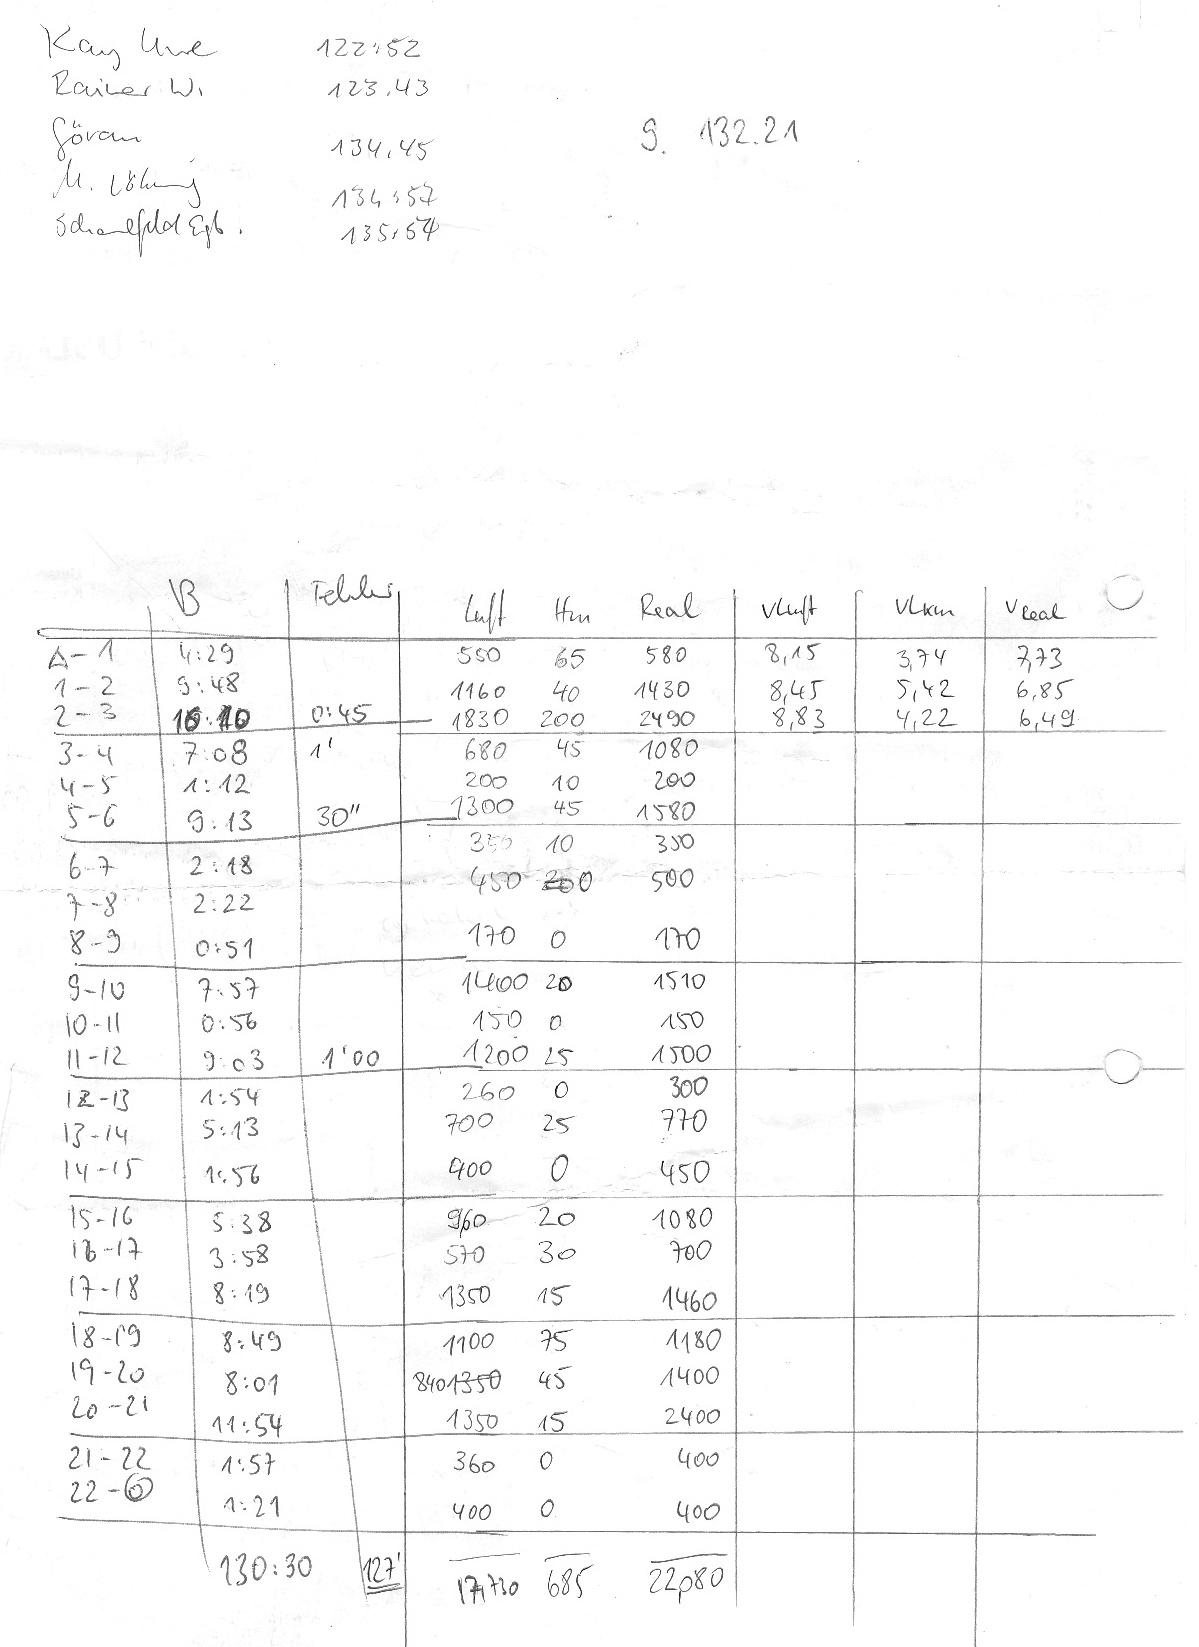 Kay Uwe 122:52
Rainer W. 123.43
Göran 134.45
9. 132.21
M. Löhnig 134:57
Egb. 135:54
VB Fehler Luft Hm Real vLuft vLkm vReal
△-1 4:29 550 65 580 8,15 3,74 7,73
1-2 9:48 1160 40 1430 8,45 5,42 6,85
2-3 16:10 0:45 1830 200 2490 8,83 4,22 6,49
3-4 7:08 1' 680 45 1080
4-5 1:12 200 10 200
5-6 9:13 30" 1300 45 1580
6-7 2:18 350 10 350
7-8 2:22 450 0 500
8-9 0:51 170 0 170
9-10 7:57 1400 20 1510
10-11 0:56 150 0 150
11-12 9:03 1'00 1200 25 1500
12-13 1:54 260 0 300
13-14 5:13 700 25 770
14-15 1:56 400 0 450
15-16 5:38 960 20 1080
16-17 3:58 570 30 700
17-18 8:19 1350 15 1460
18-19 8:49 1100 75 1180
19-20 8:01 840 1350 45 1400
20-21 11:54 1350 15 2400
21-22 1:57 360 0 400
22-◎ 1:21 400 0 400
130:30 127' 17,730 685 22,080